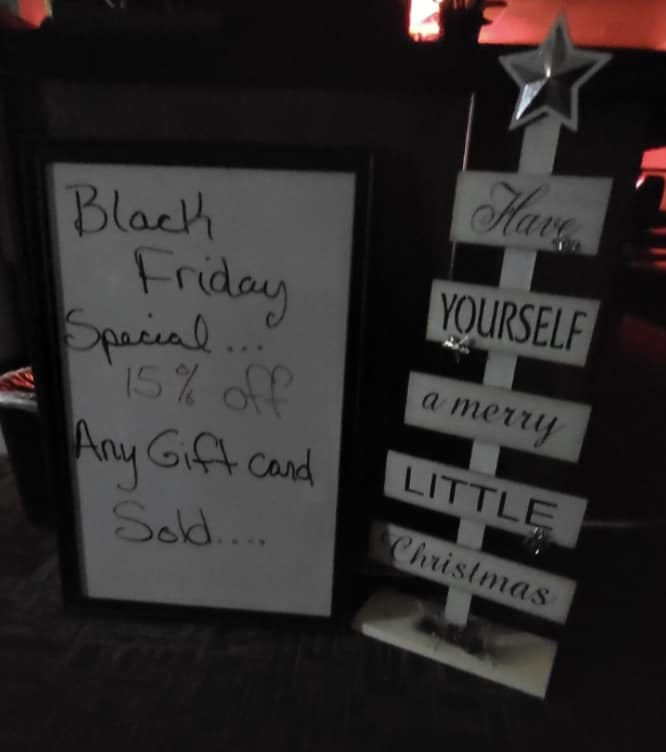 Black
Friday
Special...
15% off
Any Gift card
Sold....
Have
YOURSELF
a merry
LITTLE
Christmas